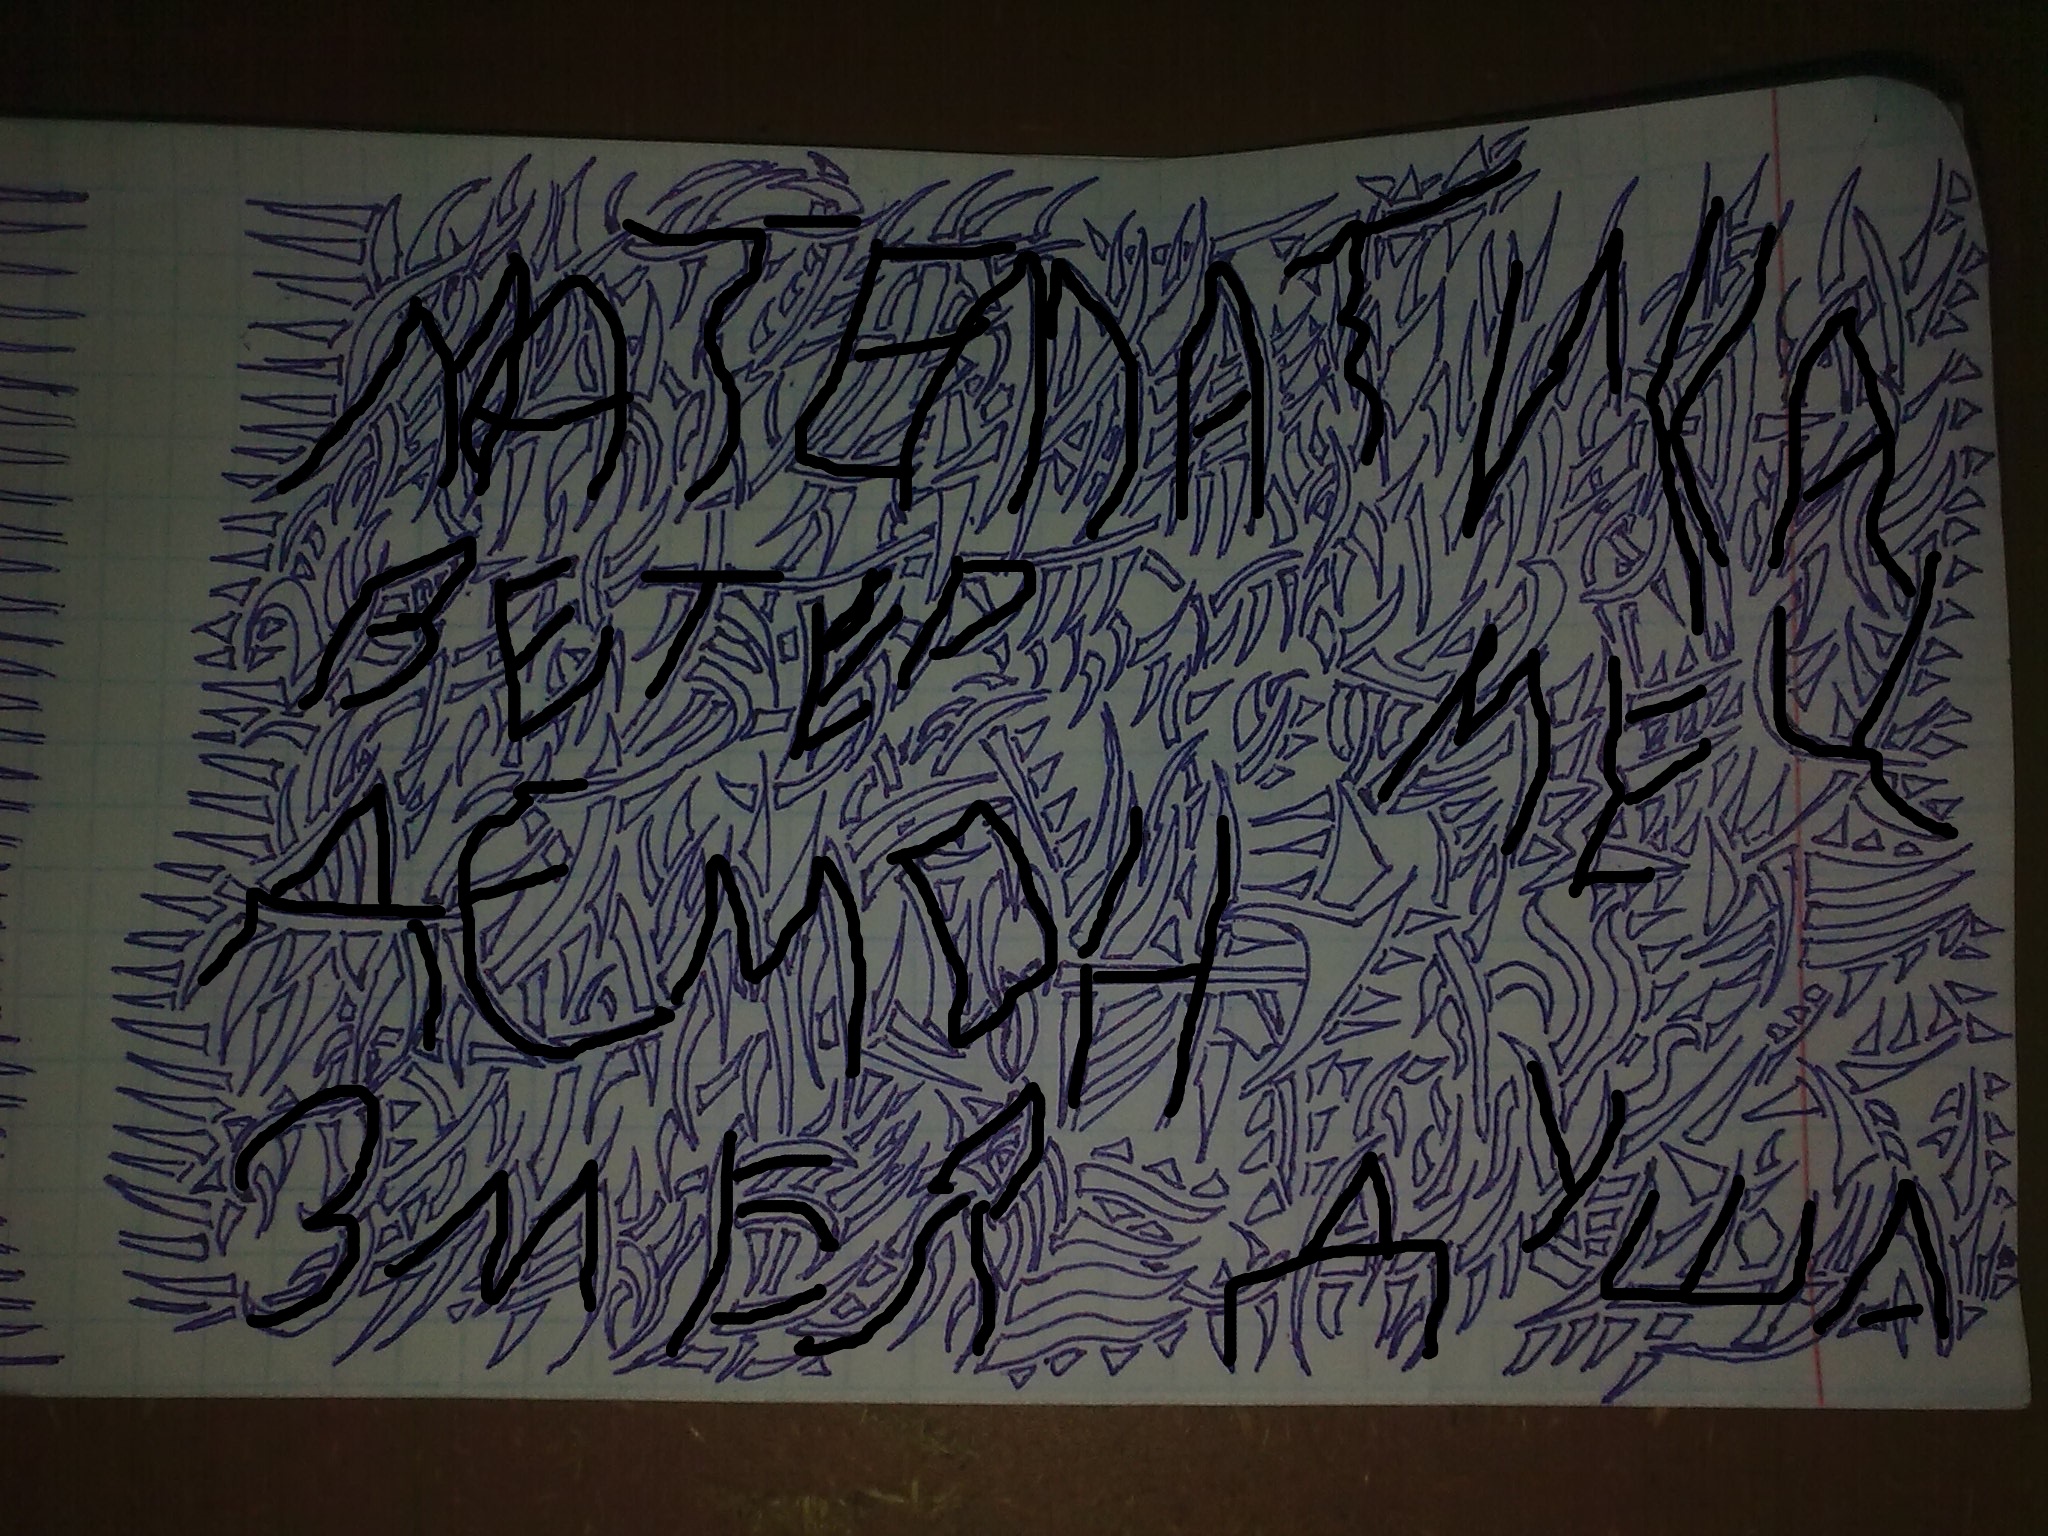 МАТЕМАТИКА
ВЕТЕР МЕЧ
ДЕМОН
ЗМЕЯ ДУША